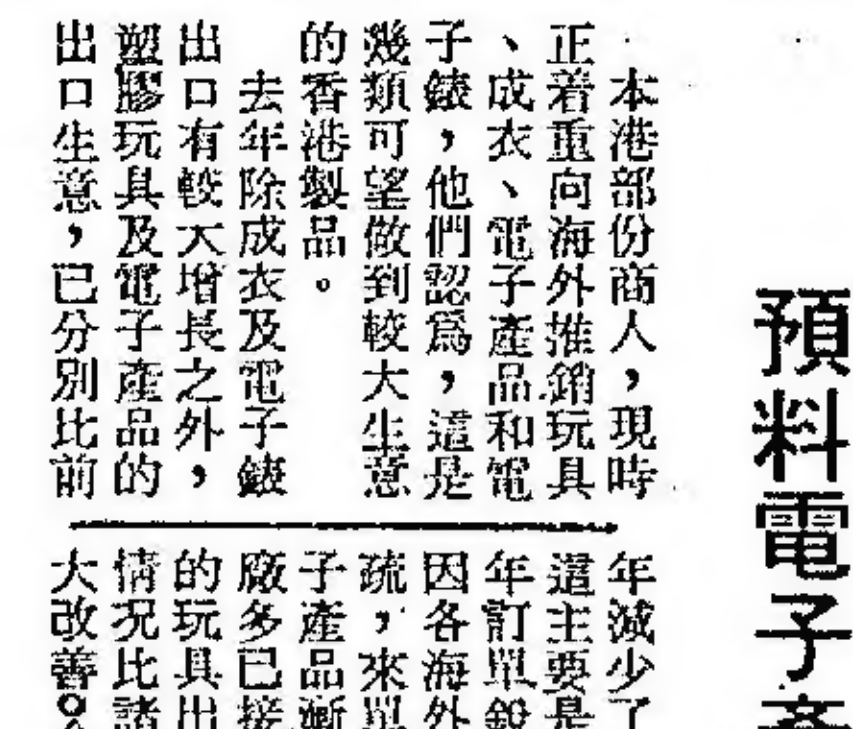 預料電子產
本港部份商人，現時
正着重向海外推銷玩具
、成衣、電子產品和電
子錶，他們認爲，這是
幾類可望做到較大生意
的香港製品。
去年除成衣及電子錶
出口有較大增長之外，
塑膠玩具及電子產品的
出口生意，已分別比前
年減少了
這主要是
年訂單銳
因各海外
疏，來單
子產品漸
廠多已接
的玩具出
情況比諸
大改善。